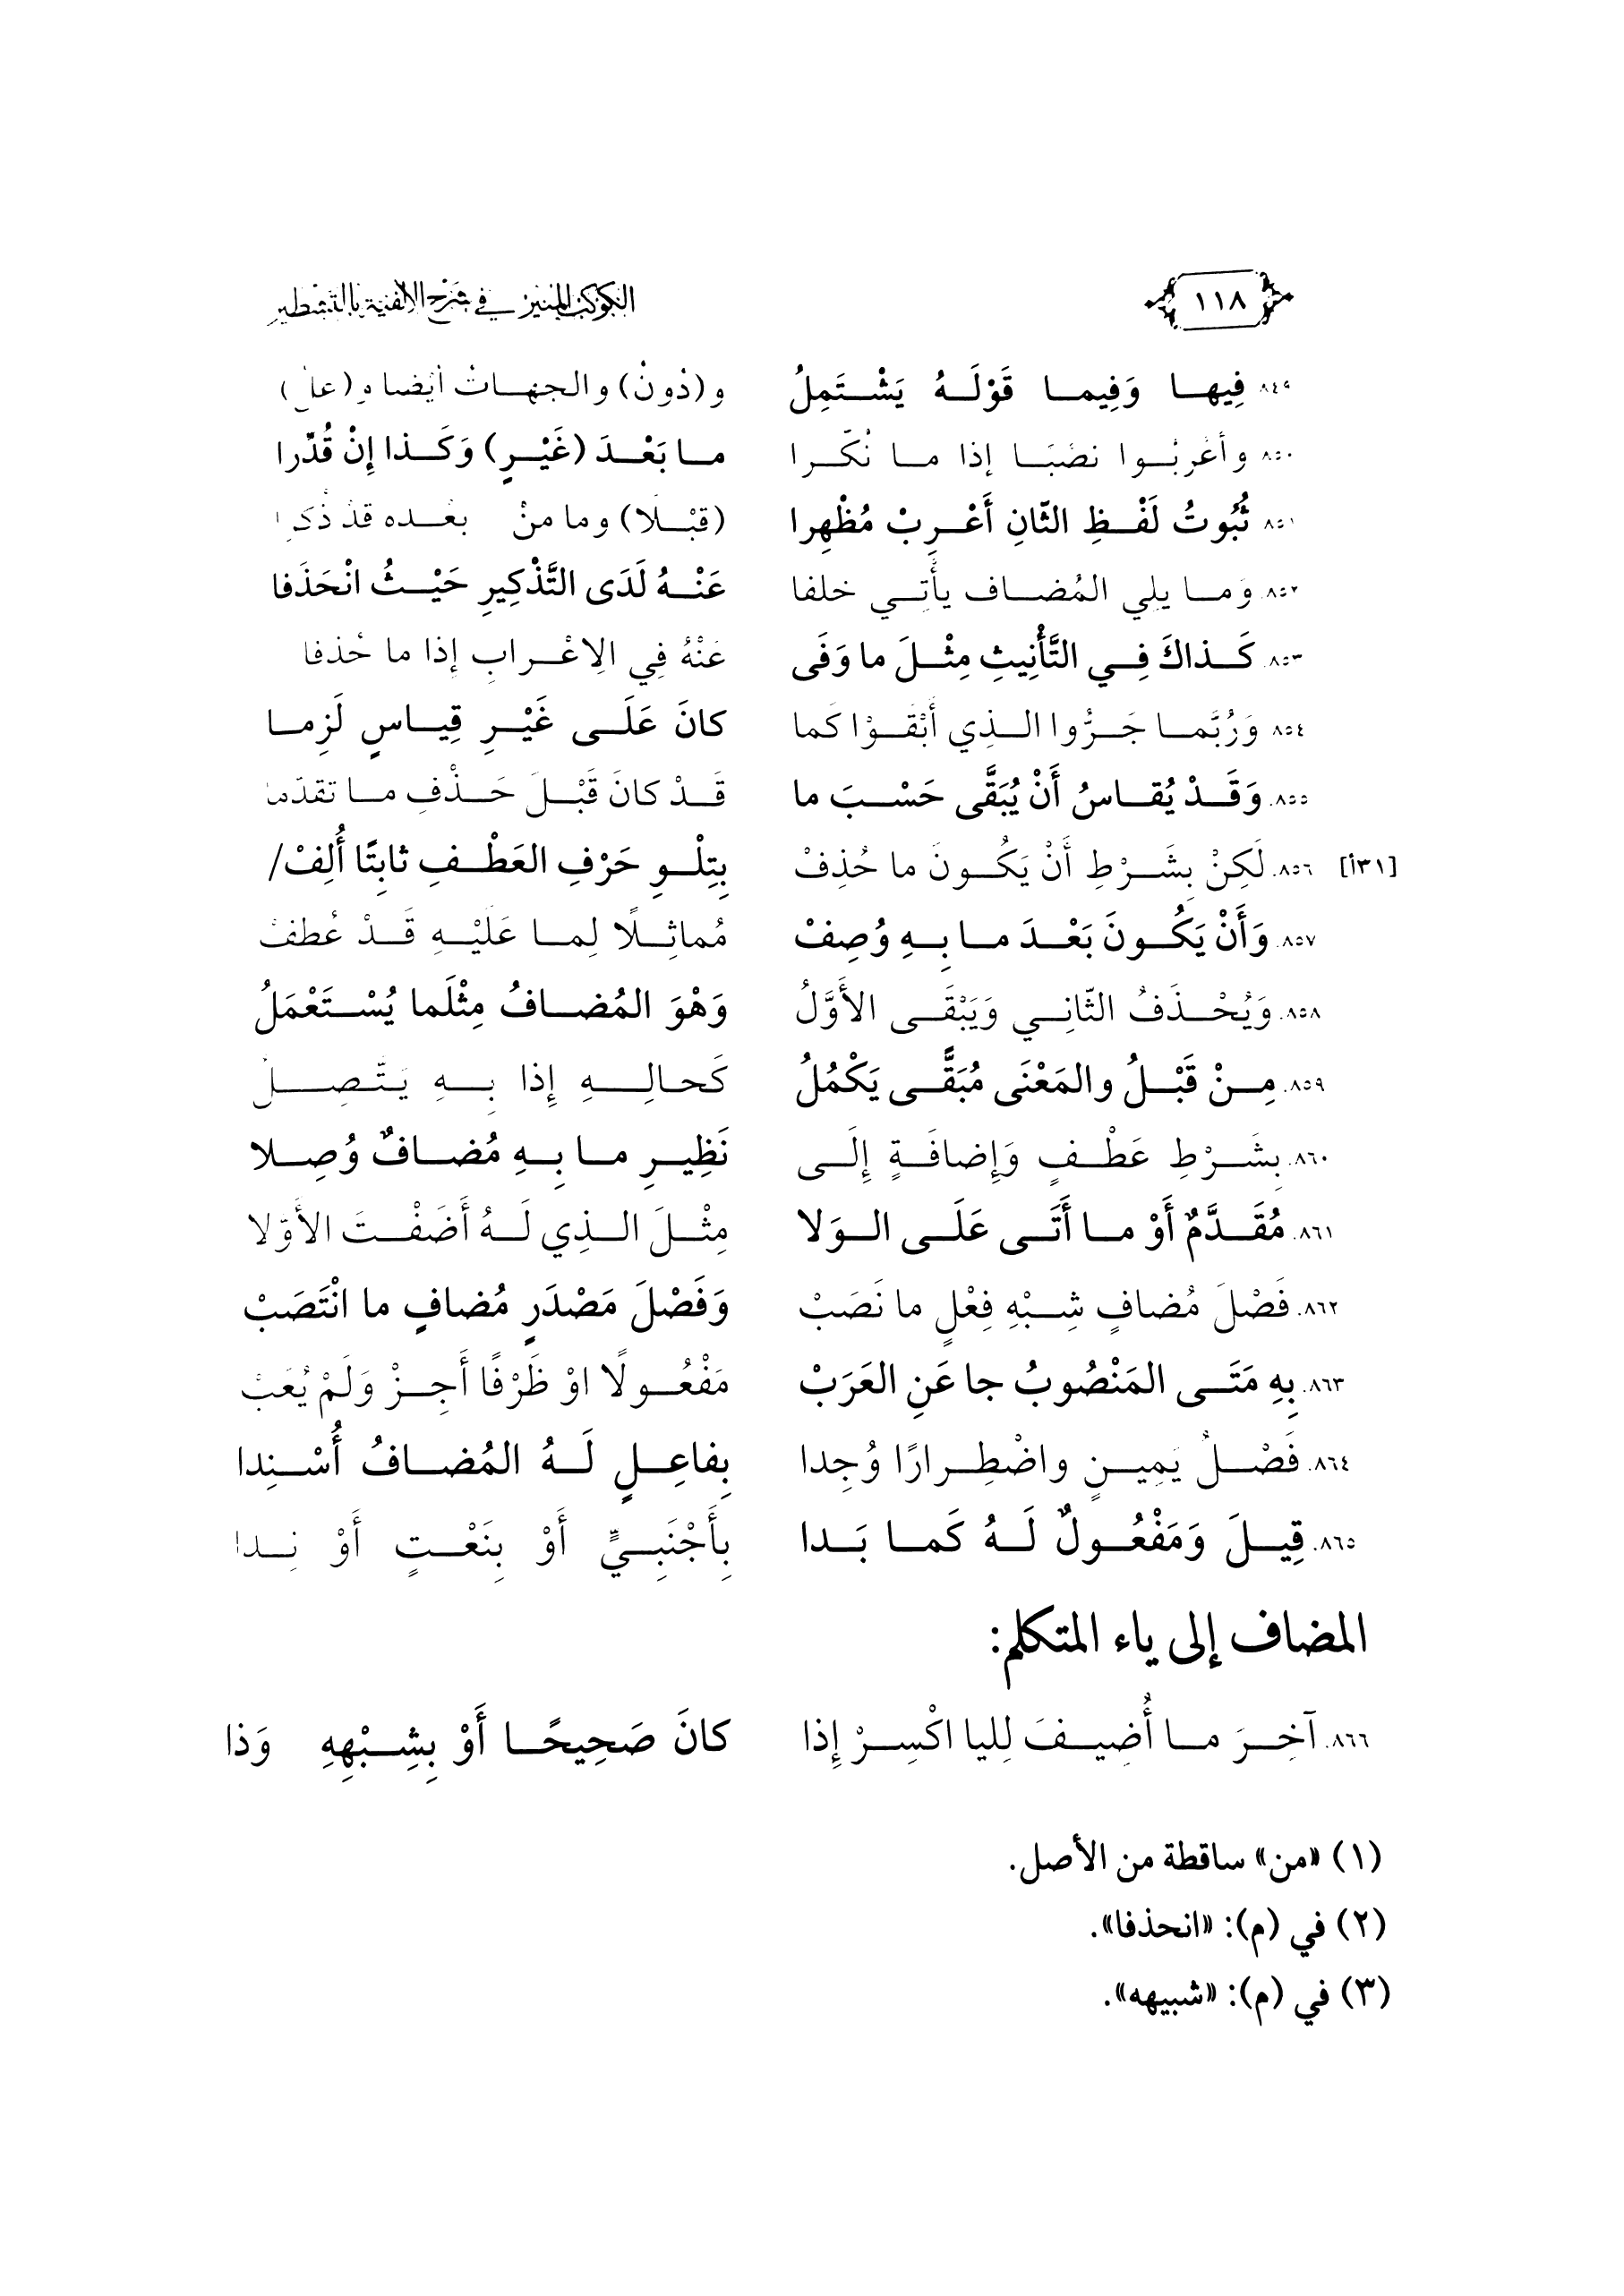 ١١٨ الكوكب المنير في شرح الألفية بالتشطير
٨٤٩ فِيها وَفِيما قَوْلَهُ يَشْتَمِلُ و(دُونُ) والجهاتُ أيضا و(علُ)
٨٥٠. وأعْرَبُوا نصْبَا إذا ما نُكّرا ما بَعْدَ (غَيْرٍ) وَكَذا إِنْ قُدِّرا
٨٥١ ثُبُوتُ لَفْظِ الثّانِ أَعْرِبْ مُظْهِرا (قبْلًا) وما منْ بعْده قدْ ذُكرا
٨٥٢. وَما يلِي المُضاف يأْتِي خلفا عَنْهُ لَدَى التَّذْكِيرِ حَيْثُ انْحَذَفا
٨٥٣. كَذاكَ فِي التَّأْنِيثِ مِثْلَ ما وَفَى عَنْهُ فِي الِاعْرابِ إذا ما حُذفا
٨٥٤ وَرُبَّما جَرُّوا الذِي أَبْقَوْا كَما كانَ عَلَى غَيْرِ قِياسٍ لَزِما
٨٥٥. وَقَدْ يُقاسُ أَنْ يُبَقَّى حَسْبَ ما قَدْ كانَ قَبْلَ حَذْفِ ما تقدّما
[٣١أ] ٨٥٦. لَكِنْ بِشَرْطِ أَنْ يَكُونَ ما حُذِفْ بِتِلْوِ حَرْفِ العَطْفِ ثابِتًا أُلِفْ/
٨٥٧. وَأَنْ يَكُونَ بَعْدَ ما بِهِ وُصِفْ مُماثِلًا لِما عَلَيْهِ قَدْ عُطفْ
٨٥٨. وَيُحْذَفُ الثّانِي وَيَبْقَى الأَوَّلُ وَهْوَ المُضافُ مِثْلَما يُسْتَعْمَلُ
٨٥٩. مِنْ قَبْلُ والمَعْنَى مُبَقًّى يَكْمُلُ كَحالِهِ إِذا بِهِ يَتَّصِلُ
٨٦٠. بِشَرْطِ عَطْفٍ وَإِضافَةٍ إِلَى نَظِيرِ ما بِهِ مُضافٌ وُصِلا
٨٦١. مُقَدَّمٌ أَوْ ما أَتَى عَلَى الوَلا مِثْلَ الذِي لَهُ أَضَفْتَ الأَوّلا
٨٦٢. فَصْلَ مُضافٍ شِبْهِ فِعْلٍ ما نَصَبْ وَفَصْلَ مَصْدَرٍ مُضافٍ ما انْتَصَبْ
٨٦٣. بِهِ مَتَى المَنْصُوبُ جا عَنِ العَرَبْ مَفْعُولًا اوْ ظَرْفًا أَجِزْ وَلَمْ يُعَبْ
٨٦٤. فَصْلُ يَمِينٍ واضْطِرارًا وُجِدا بِفاعِلٍ لَهُ المُضافُ أُسْنِدا
٨٦٥. قِيلَ وَمَفْعُولٌ لَهُ كَما بَدا بِأَجْنَبِيٍّ أَوْ بِنَعْتٍ أَوْ نِدا
المضاف إلى ياء المتكلم:
٨٦٦. آخِرَ ما أُضِيفَ لِليا اكْسِرْ إِذا كانَ صَحِيحًا أَوْ بِشِبْهِهِ وَذا
(١) «من» ساقطة من الأصل.
(٢) في (م): «انحذفا».
(٣) في (م): «شبيهه».